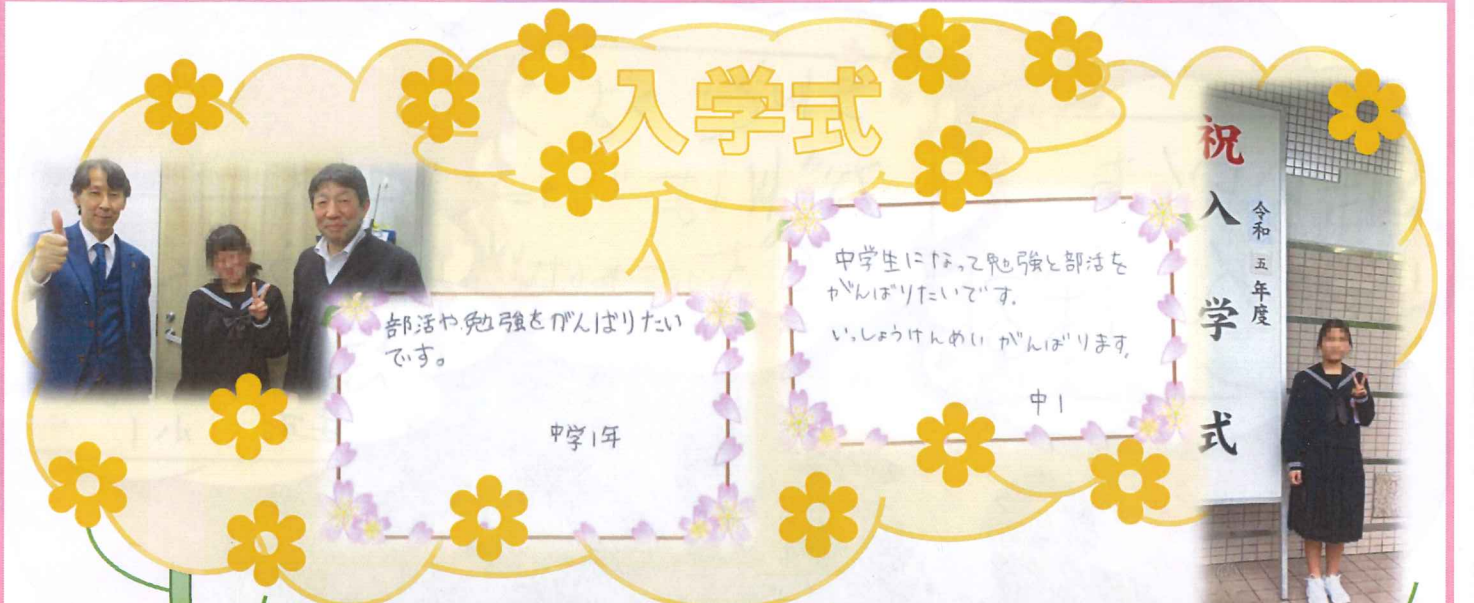 入学式
部活や勉強をがんばりたい
です。
中学1年
中学生になって勉強と部活を
がんばりたいです。
いっしょうけんめいがんばります。
中1
祝入学式
令和五年度